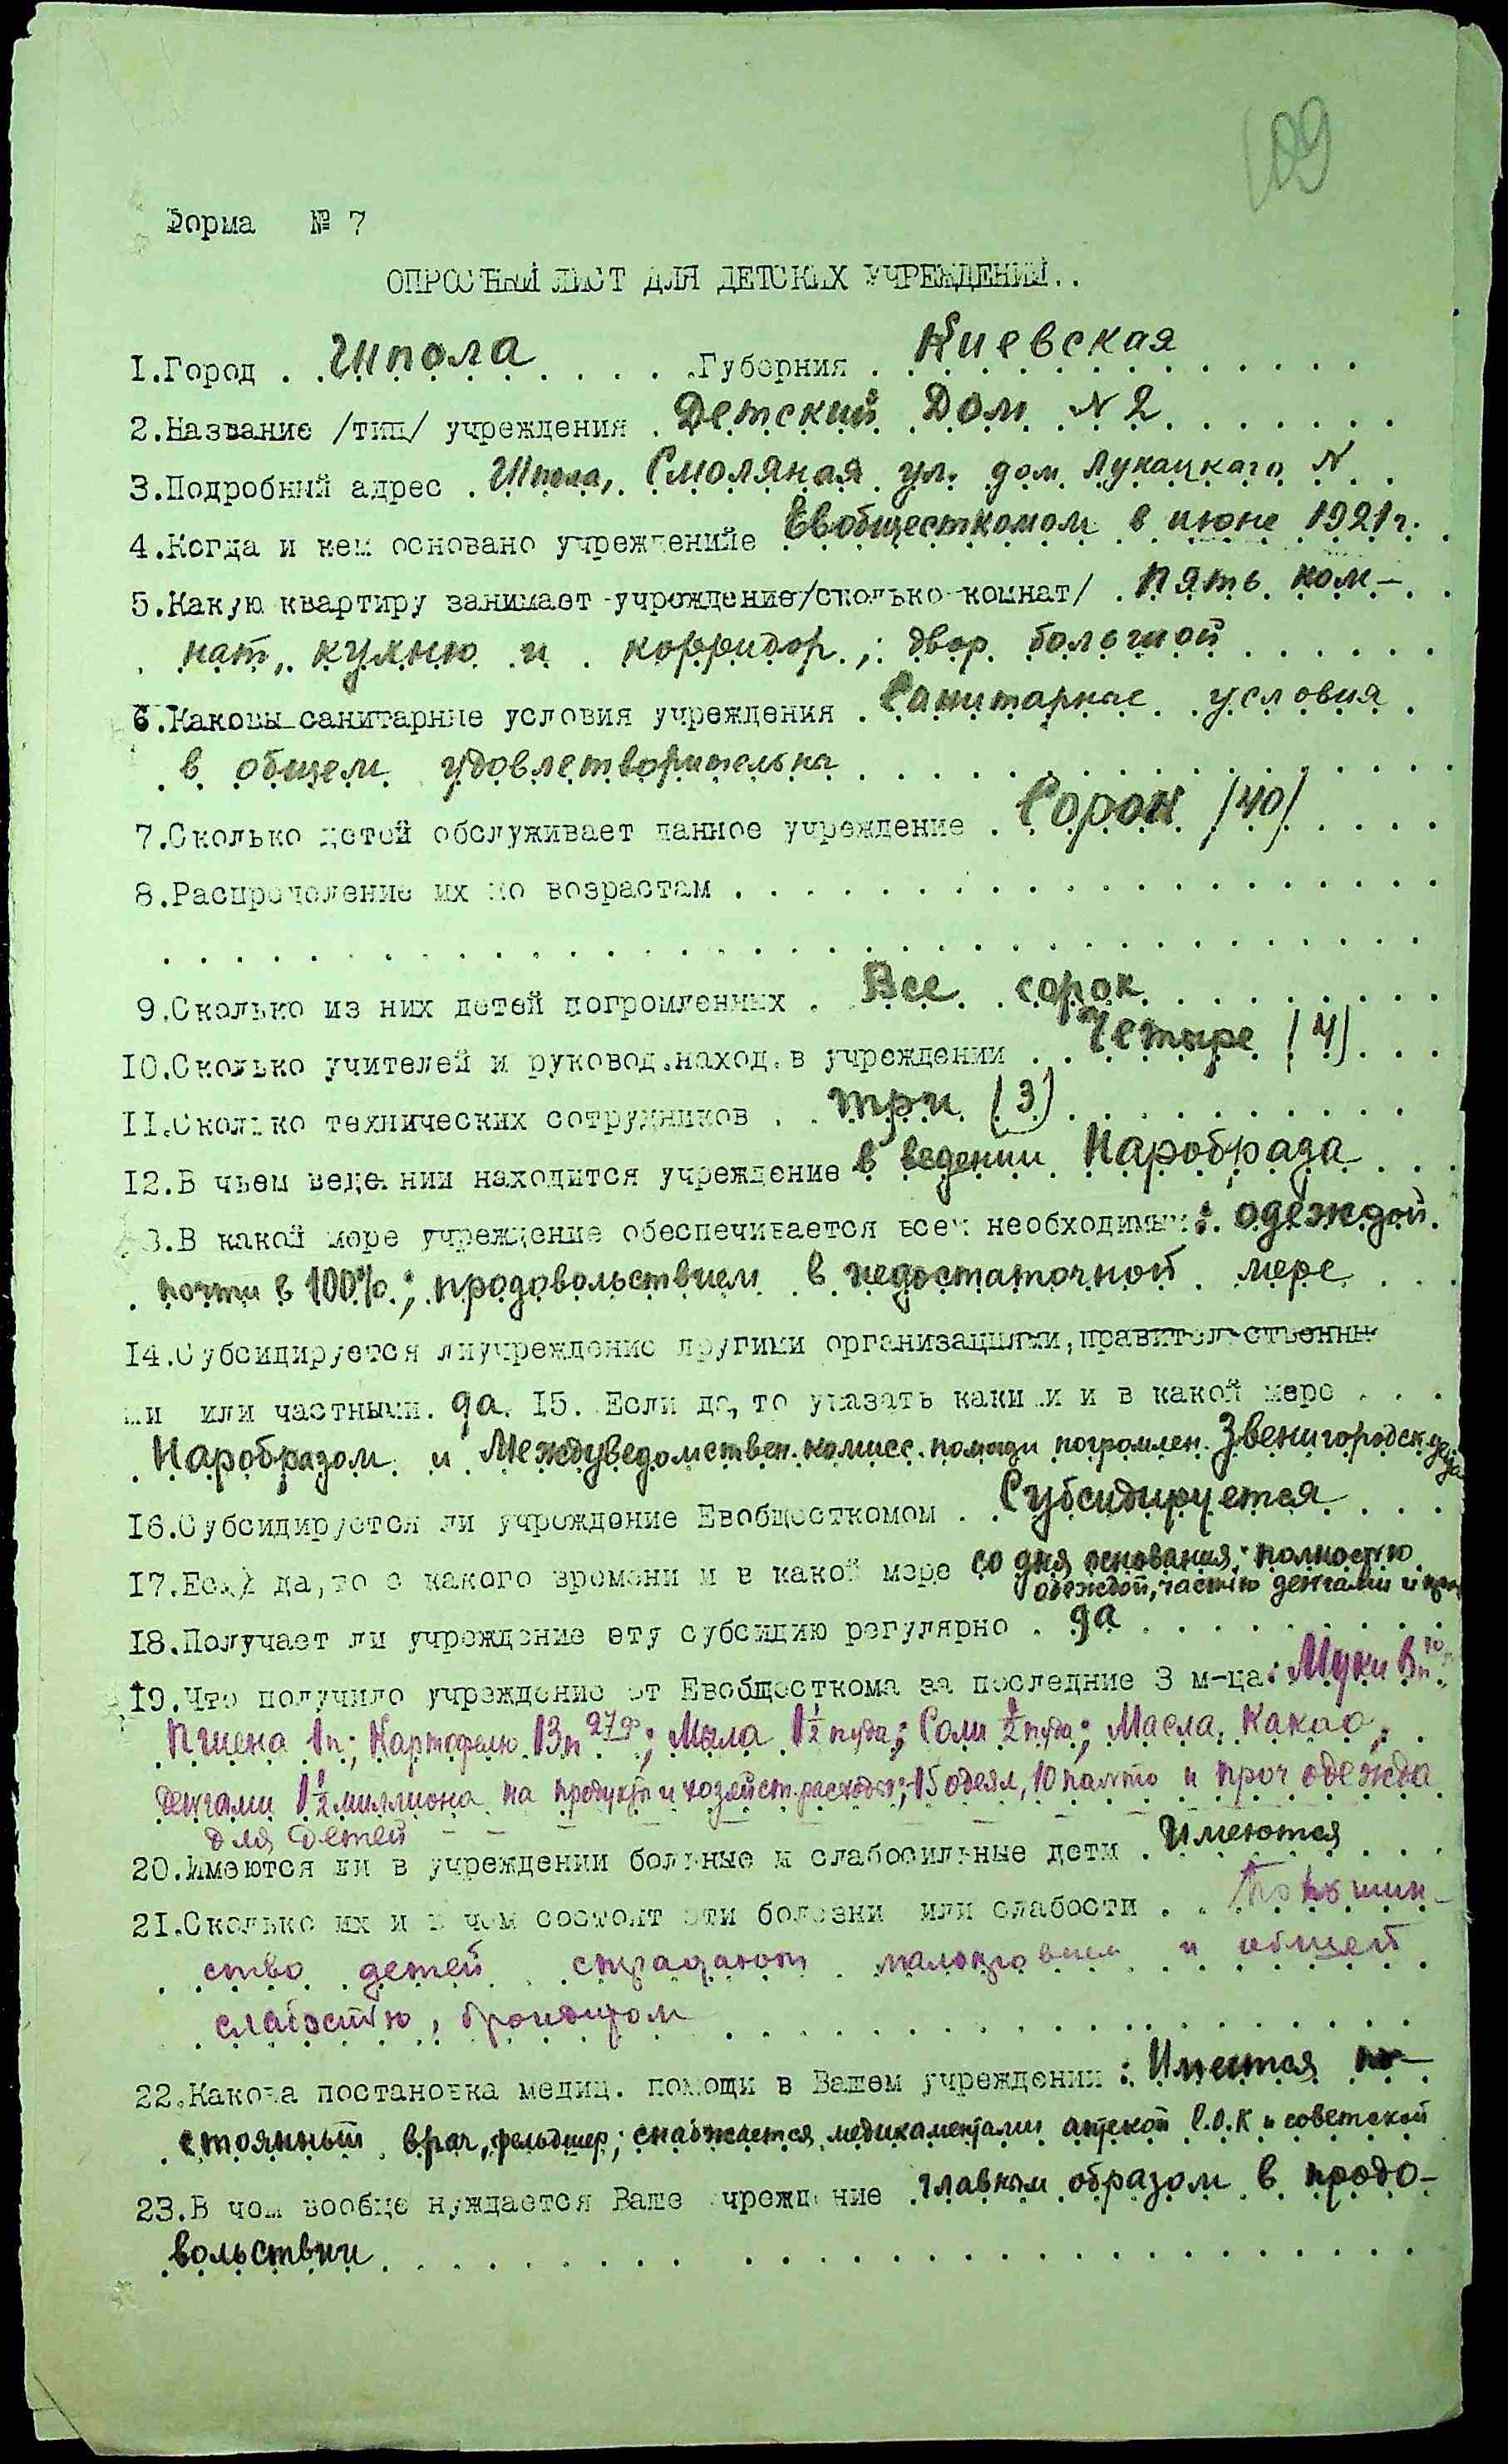 109
Форма № 7
ОПРОСНЫЙ ЛИСТ ДЛЯ ДЕТСКИХ УЧРЕЖДЕНИЙ..
1.Город . . Шпола . . . . .Губерния . Киевская
2.Название /тип/ учреждения . Детский Дом № 2
3.Подробный адрес . Шпола, Смоляная ул. дом Лукацкаго №
4.Когда и кем основано учреждениiе Евобщесткомом в июне 1921 г.
5.Какую квартиру занимает учреждение/сколько комнат/ . Пять ком-
нат, кухню и корридор ; двор большой
6.Каковы санитарние условия учреждения . Санитарные условия
в общем удовлетворительна
7.Сколько детей обслуживает данное учреждение . Сорок /40/
8.Распределение их по возрастам
9.Сколько из них детей погромленных . Все сорок
10.Сколько учителей и руковод.наход.в учреждении . . Четыре (4)
11.Сколько технических сотрудников . . три (3)
12.В чьем ведении находится учреждение в ведении Наробраза
3.В какой мере учреждение обеспечивается всем необходимым: одеждой
почти в 100%; продовольствием в недостаточной мере
14.Субсидируется лиучреждение другими организациями,правительственны
ми или частными. да. 15. Если да, то указать какими и в какой мере . . .
Наробразом и Междуведомствен. комисс. помощи погромлен. Звенигородск. уезда
16.Субсидируется ли учреждение Евобщесткомом . . Субсидируется
17.Если да,то с какого времени и в какой мере со дня основания; полностью
одеждой, частью деньгами и
18.Получает ли учреждение эту субсидию регулярно . да
19.Что получило учреждение от Евобщесткома за последние 3 м-ца: Муки 8п
Пшена 1п; Картофелю 13п 27ф; Мыла 1½ пуда; Соли ½ пуда; Масла, Какао,
деньгами 1½ миллиона на продукты и хозяйст. расходы; 15 одеял, 10 пальто и проч одежда
для детей
20.Имеются ли в учреждении больные и слабосильные дети . Имеются
21.Сколько их и в чем состоит эти болезни или слабости . . Большин-
ство детей страдают малокровием и общей
слабостью, бронхитом
22.Какова постановка медиц. помощи в Вашем учреждении : Имеется по-
стоянный врач, фельдшер; снабжается медикаментами аптекой Е.О.К и советской
23.В чем вообще нуждается Ваше учреждение главным образом в продо-
вольствии